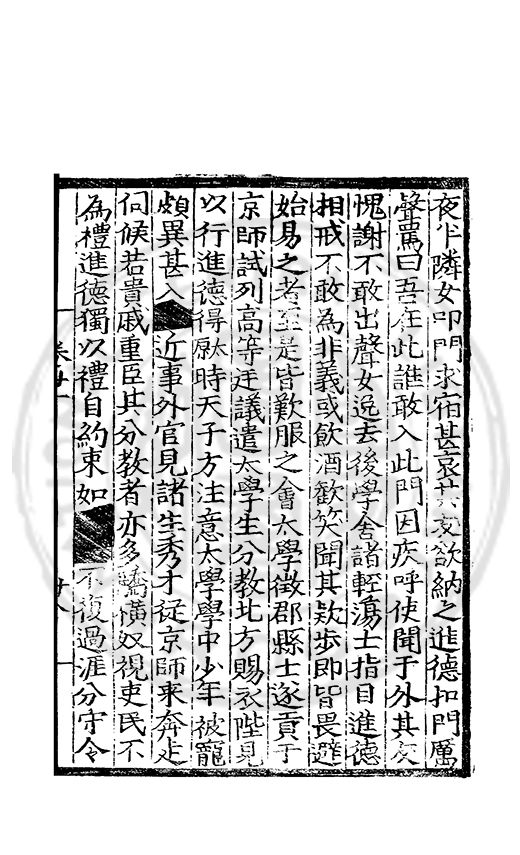 夜半隣女叩門求宿甚哀其友欲納之進德扣門厲
聲罵曰吾在此誰敢入此門因疾呼使聞于外其友
愧謝不敢出聲女逸去後學舍諸輕蕩士指目進德
相戒不敢為非義或飲酒歡笑聞其欵步即皆畏避
始易之者至是皆歎服之會太學徵郡縣士遂貢于
京師試列高等廷議遣太學生分教北方賜衣陛見
以行進德得㞐時天子方注意太學學中少年被寵
頗異甚入近事外官見諸生秀才從京師来奔走
伺候若貴戚重臣其分教者亦多驕横奴視吏民不
為禮進德獨以禮自約束如不復過涯分守令